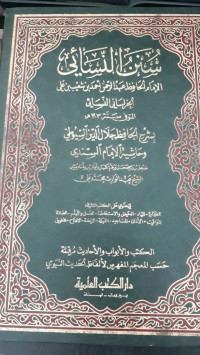 سنن النسائي
الإمام الحافظ عبد الرحمن أحمد بن شعيب بن علي
الخراساني النسائي
المتوفى سنة ٣٠٣ هـ
بشرح الحافظ جلال الدين السيوطي
وحاشية الإمام السندي
الكتب والأبواب والأحاديث مرقمة
حسب المعجم المفهرس لألفاظ الحديث النبوي
دار الكتب العلمية